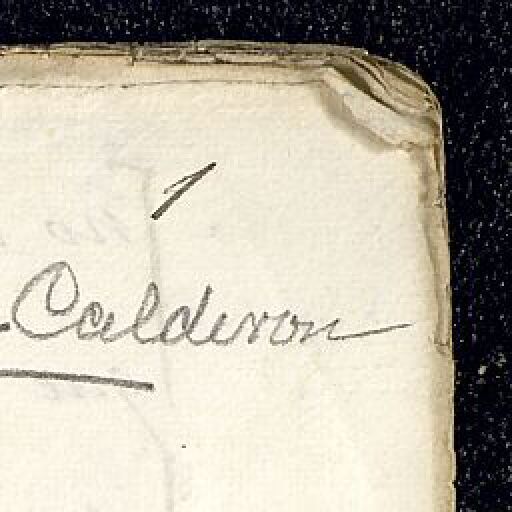 1
Calderon